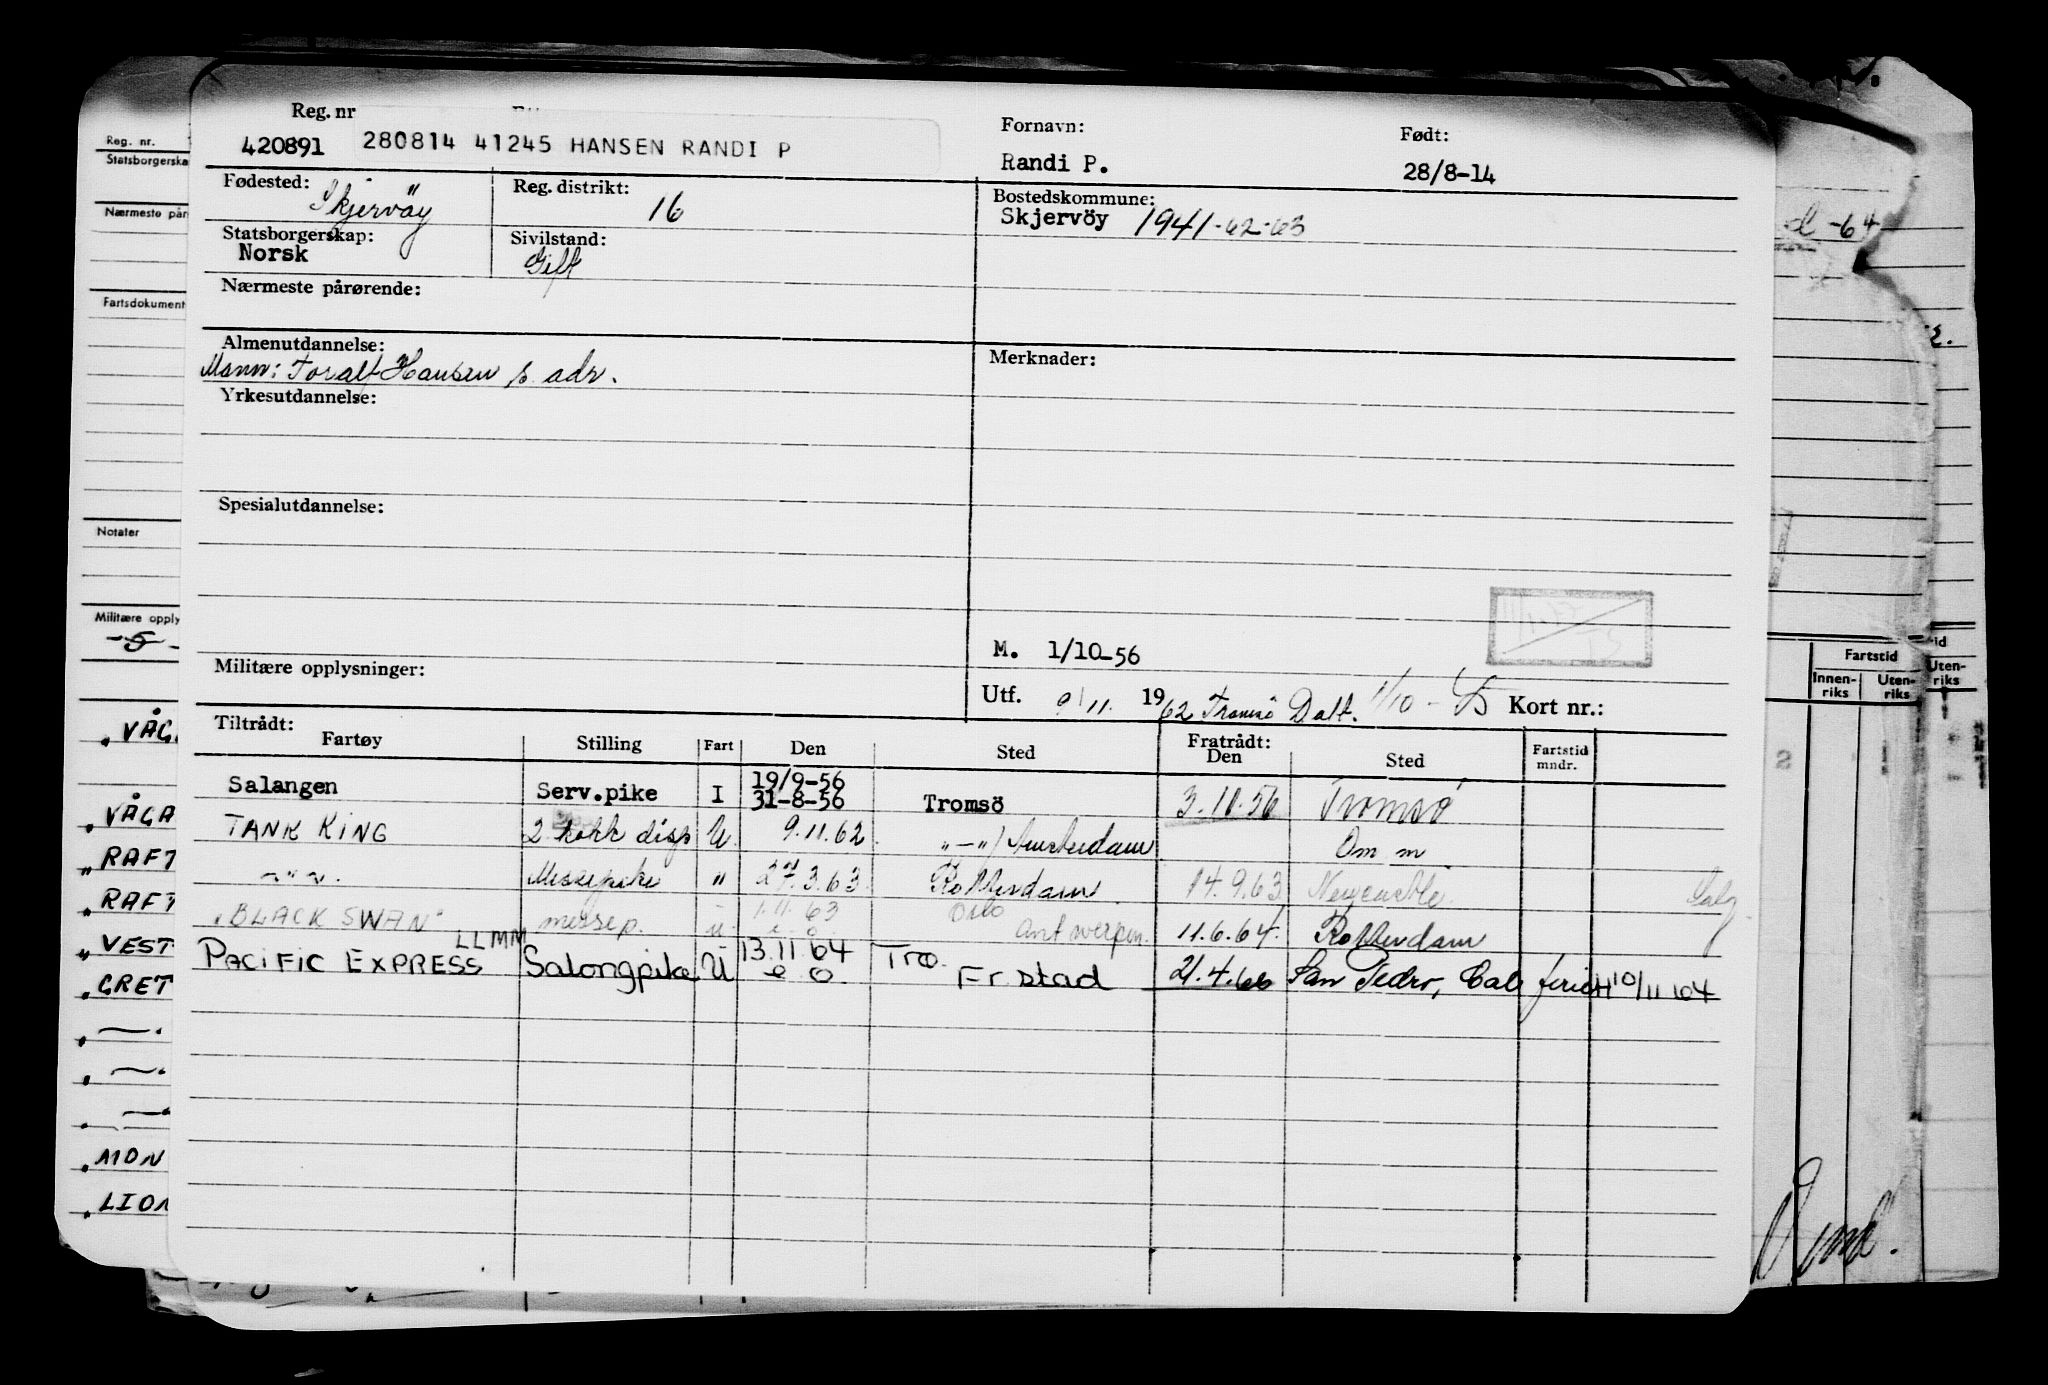 Reg. nr
420891 280814 41245 HANSEN RANDI P
Fornavn: Randi P.
Født: 28/8-14
Fødested: Skjervöy
Reg. distrikt: 16
Bostedskommune: Skjervöy 1941-62-63
Statsborgerskap: Norsk
Sivilstand: Gift
Nærmeste pårørende:
Almenutdannelse:
Mann: Toralf Hansen s. adr.
Merknader:
Yrkesutdannelse:
Spesialutdannelse:
M. 1/10-56
Militære opplysninger:
Utf. 9/11. 1962 Tromsö Kort nr.:
Tiltrådt: Fratrådt:
Fartøy Stilling Fart Den Sted Den Sted Fartstid mndr.
19/9-56
Salangen Serv.pike I 31-8-56 Tromsö 3.11.56 Tromsö
TANK KING 2 kokk disp U 9.11.62 "-"/ Amsterdam Om m
-"-. Messepike " 27.3.63 Rotterdam 14.9.63 Newcastle Salg
1.11.63 Oslo
"BLACK SWAN" messep. u Antwerpen. 11.6.64. Rotterdam
LLMM 13.11 64 Tro.
PACIFIC EXPRESS Salongpike U e o Fr.stad 21.4.66 San Pedro, Cal ferie 10/11 64
Reg. nr.
Statsborgerska
Nærmeste pår
Fartsdokument
Notater
Militære opply
-5-
VÅG
VÅGA
RAFT
RAFT
VEST
GRET
MON
LION
-64
Fartstid
Innen-riks Uten-riks
Uten-riks
2